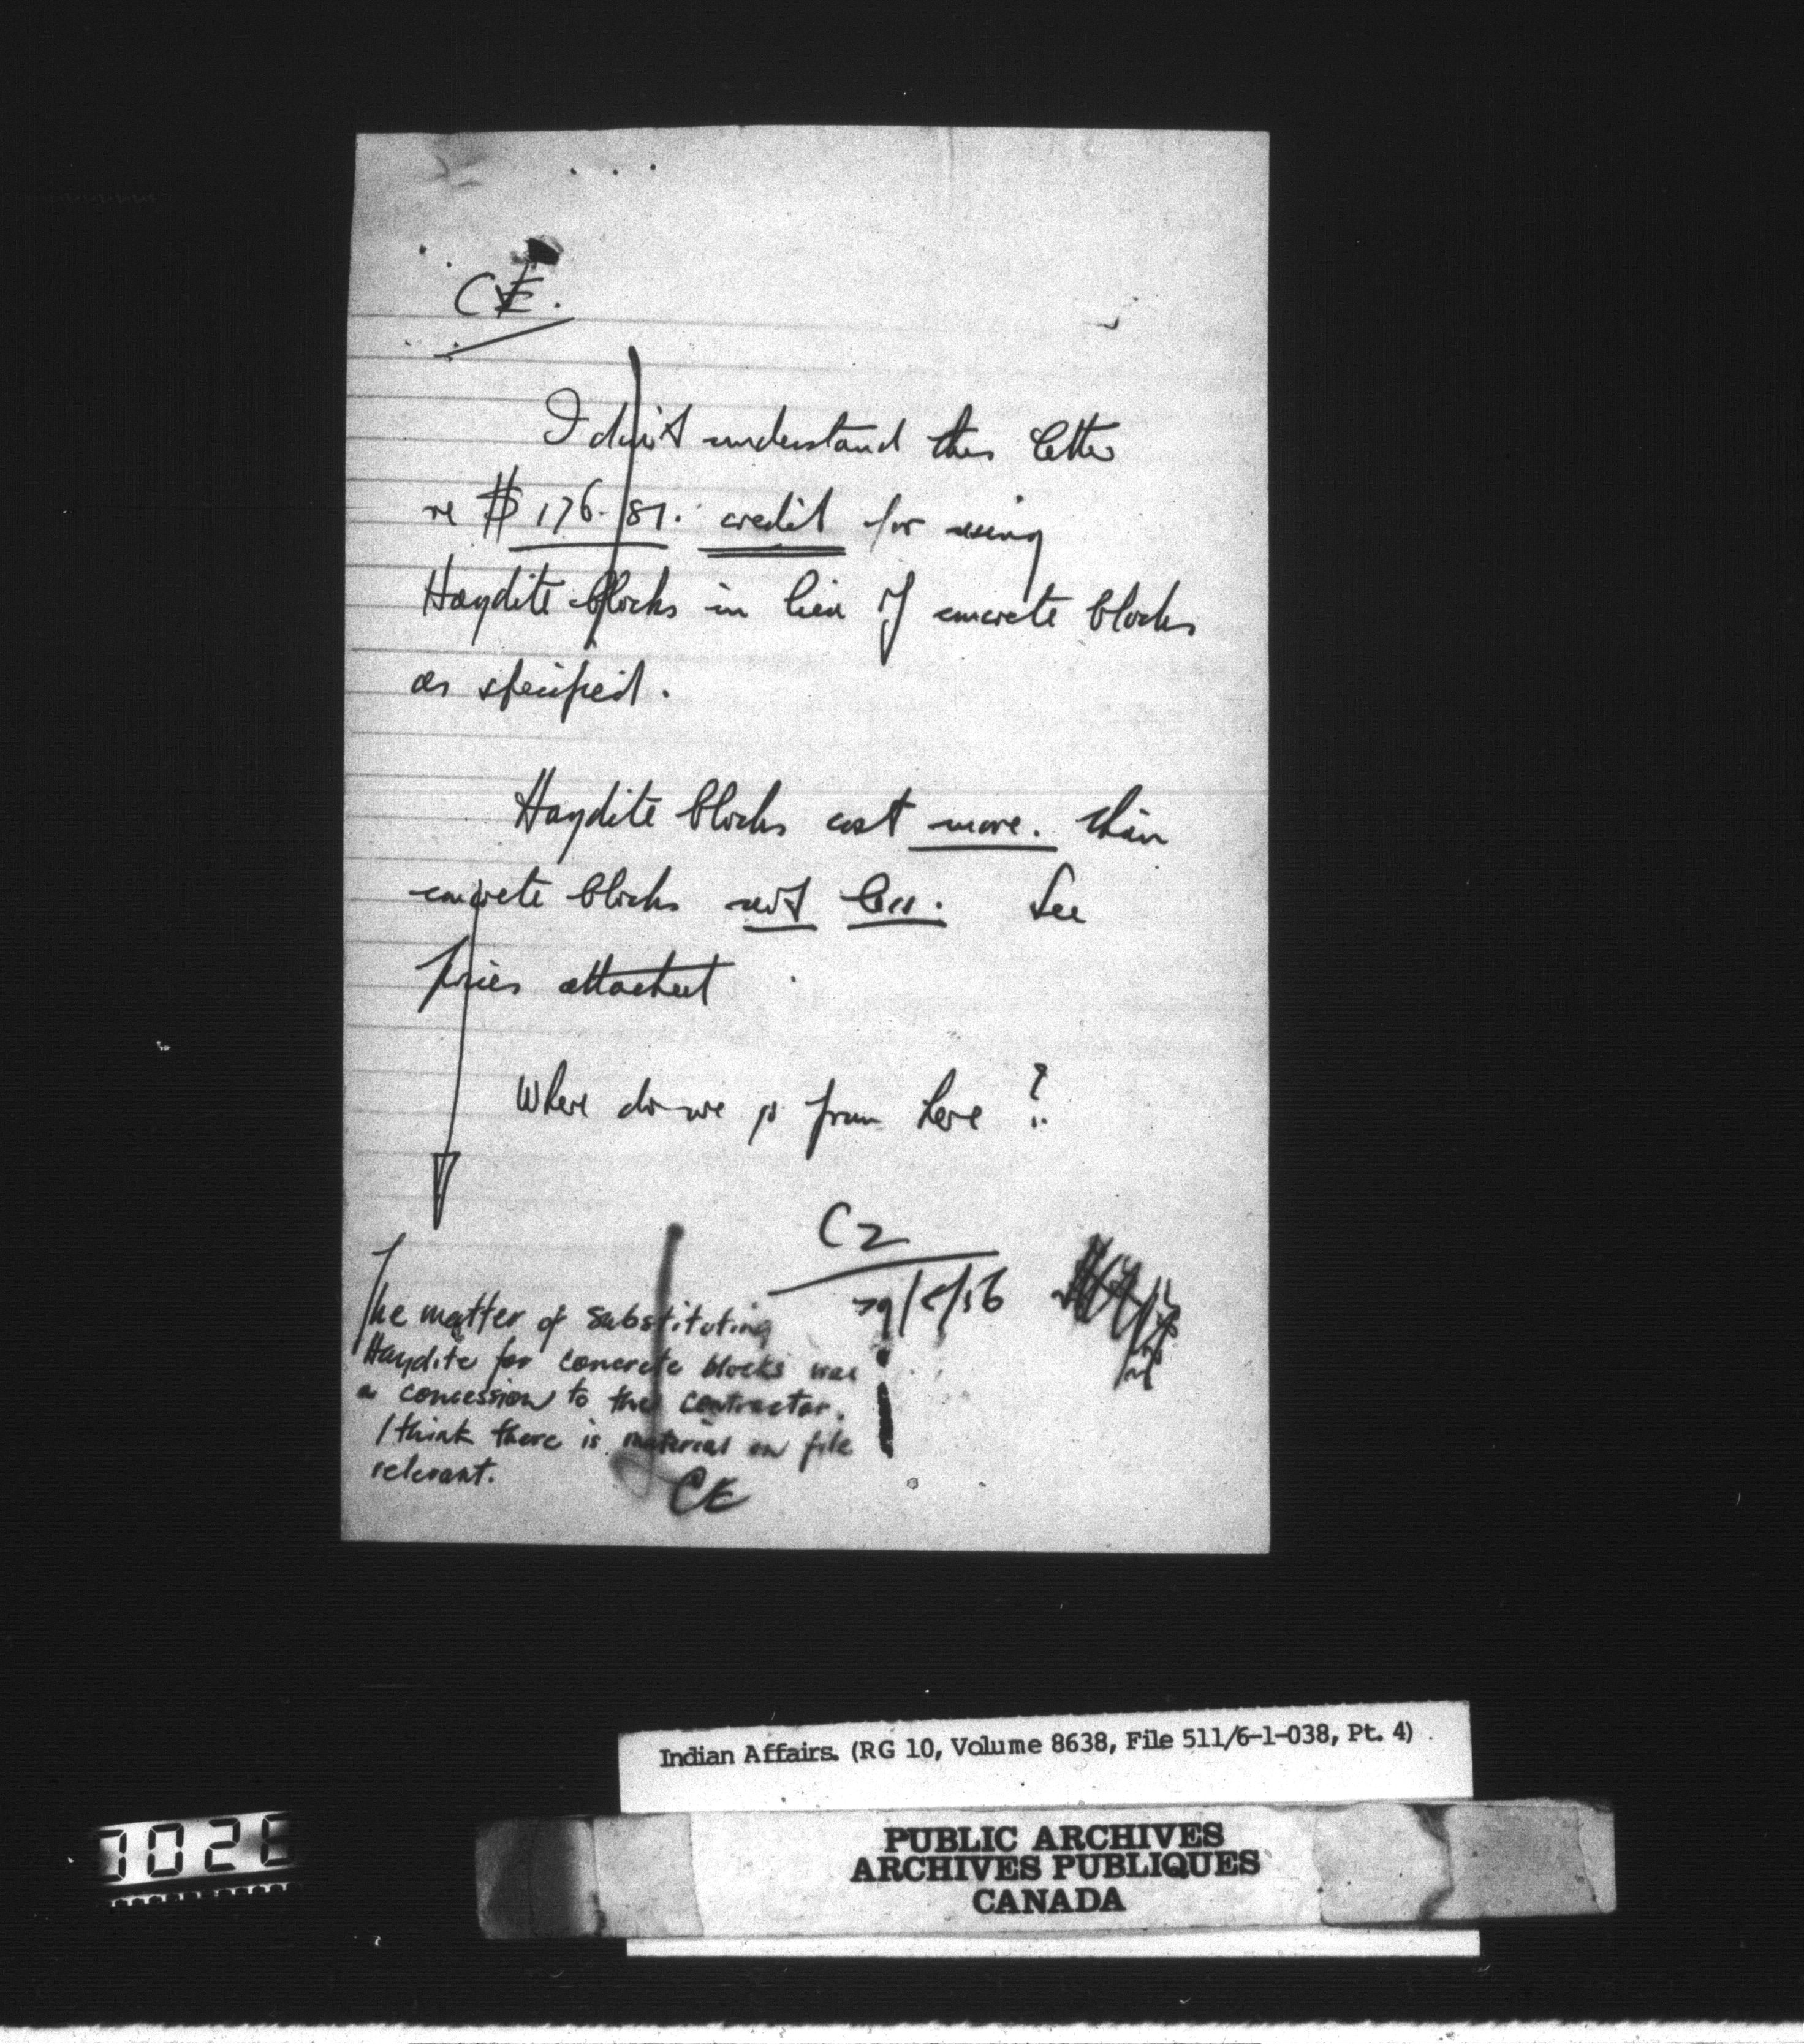 CE.
I don't understand this letter
re $176.81. credit for using
Haydite blocks in lieu of concrete blocks
as specified.
Haydite blocks cost more. than
concrete blocks not less. See
prices attached
Where do we go from here?
C2
The matter of substituting
Haydite for concrete blocks was
a concession to the contractor.
I think there is material on file
relevant.
CE
Indian Affairs. (RG 10, Volume 8638, File 511/6-1-038, Pt. 4)
PUBLIC ARCHIVES
ARCHIVES PUBLIQUES
CANADA